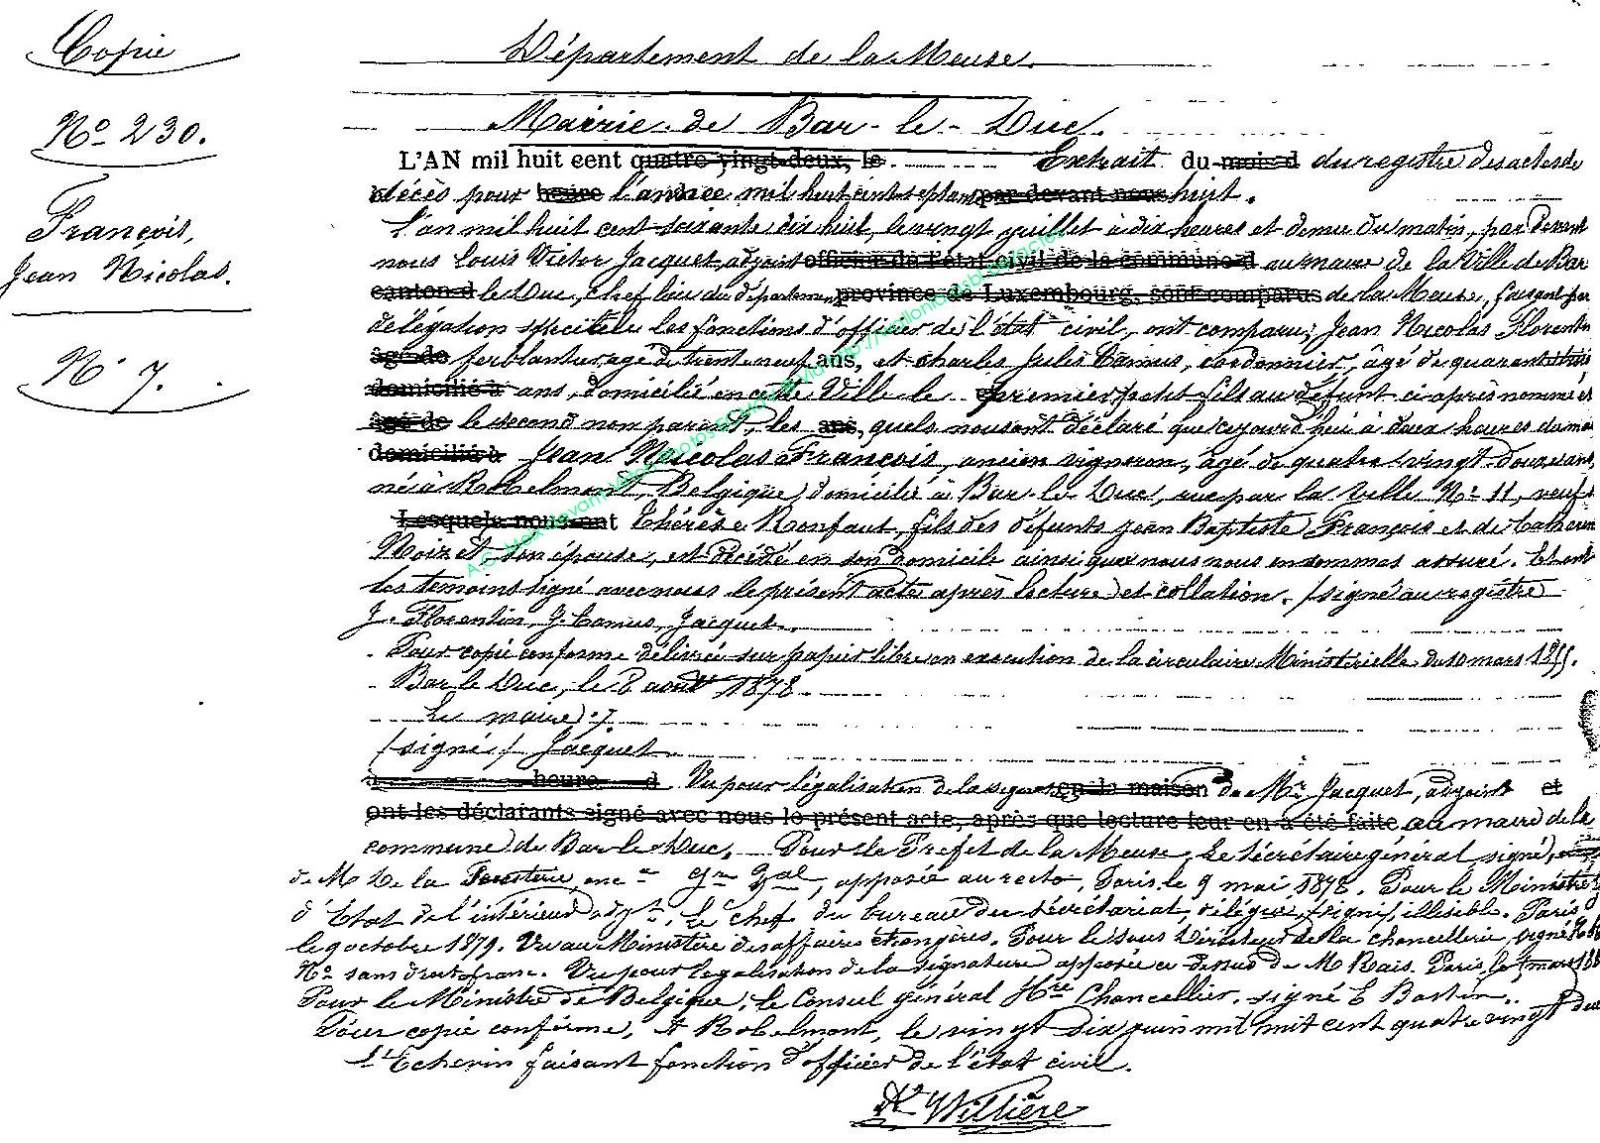 Copie
Nº 230.
François,
Jean Nicolas.
N° 7.
Département de la Meuse.
Mairie de Bar-le-Duc.
L'AN mil huit cent quatre-vingt-deux, le Extrait du mois d du registre des actes de
décès pour heure l'année mil huit cent septante par devant nous huit.
L'an mil huit cent soixante dix huit, le vingt juillet à dix heures et demie du matin, par devant
nous Louis Victor Jacquet, adjoint officier de l'état civil de la commune d au maire de la Ville de Bar
canton d le Duc, chef lieu du département province de Luxembourg, sont comparus de la Meuse, faisant par
délégation spéciale les fonctions d'officier de l'état civil, ont comparu; Jean Nicolas Florentin
âgé de ferblantier, agé de trente neuf ans, et Charles Jules Camus, cordonnier, âgé de quarante
domicilié à ans, domicilié en cette Ville le premier petit fils au défunt ci après nommé et
âgé de le second non parent, les ans, quels nous ont déclaré que cejourd'hui à deux heures du
domicilié à Jean Nicolas François, ancien vigneron, âgé de quatre vingt douze ans,
né à Robelmont, Belgique, domicilié à Bar-le-Duc, rue par la Ville Nº 11, veuf
Lesquels nous ont Thérèse Ronfaut, fils des défunts Jean Baptiste François et de Catherine
Noizet, son épouse, est décédé en son domicile ainsi que nous nous en sommes assuré. Et ont
les témoins signé avec nous le présent acte après lecture et collation. /signé au registre
J. Florentin, J. Camus, Jacquet.
Pour copie conforme délivrée sur papier libre en execution de la circulaire Ministérielle du 10 mars 1855.
Bar le Duc, le 8 août 1878.
Le maire,
/signé/ Jacquet.
heure d Vu pour légalisation de la signature en la maison de Mr Jacquet, adjoint et
ont les déclarants signé avec nous le présent acte, après que lecture leur en a été faite au maire de la
commune de Bar le Duc. Pour le Préfet de la Meuse, Le Sécrétaire général signé,
de M De la apposée au recto, Paris le 9 mai 1878. Pour le Ministre
d'Etat de l'intérieur Le chef du bureau du sécrétariat, délégué, /signé/, illisible. Paris
le 9 octobre 1879. Vu au Ministère des affaires étrangères. Pour le sous Directeur de la chancellerie, signé
Nº sans droit franc. Vu pour legalisation de la signature apposée ci dessus de M Rais. Paris, le mars
Pour le Ministre de Belgique, Le Consul général Hre Chancellier. signé E Bastin.
Pour copie conforme, A Robelmont, le vingt dix juin mil huit cent quatre vingt deux
L'Echevin faisant fonction d'officier de l'état civil.
Willière